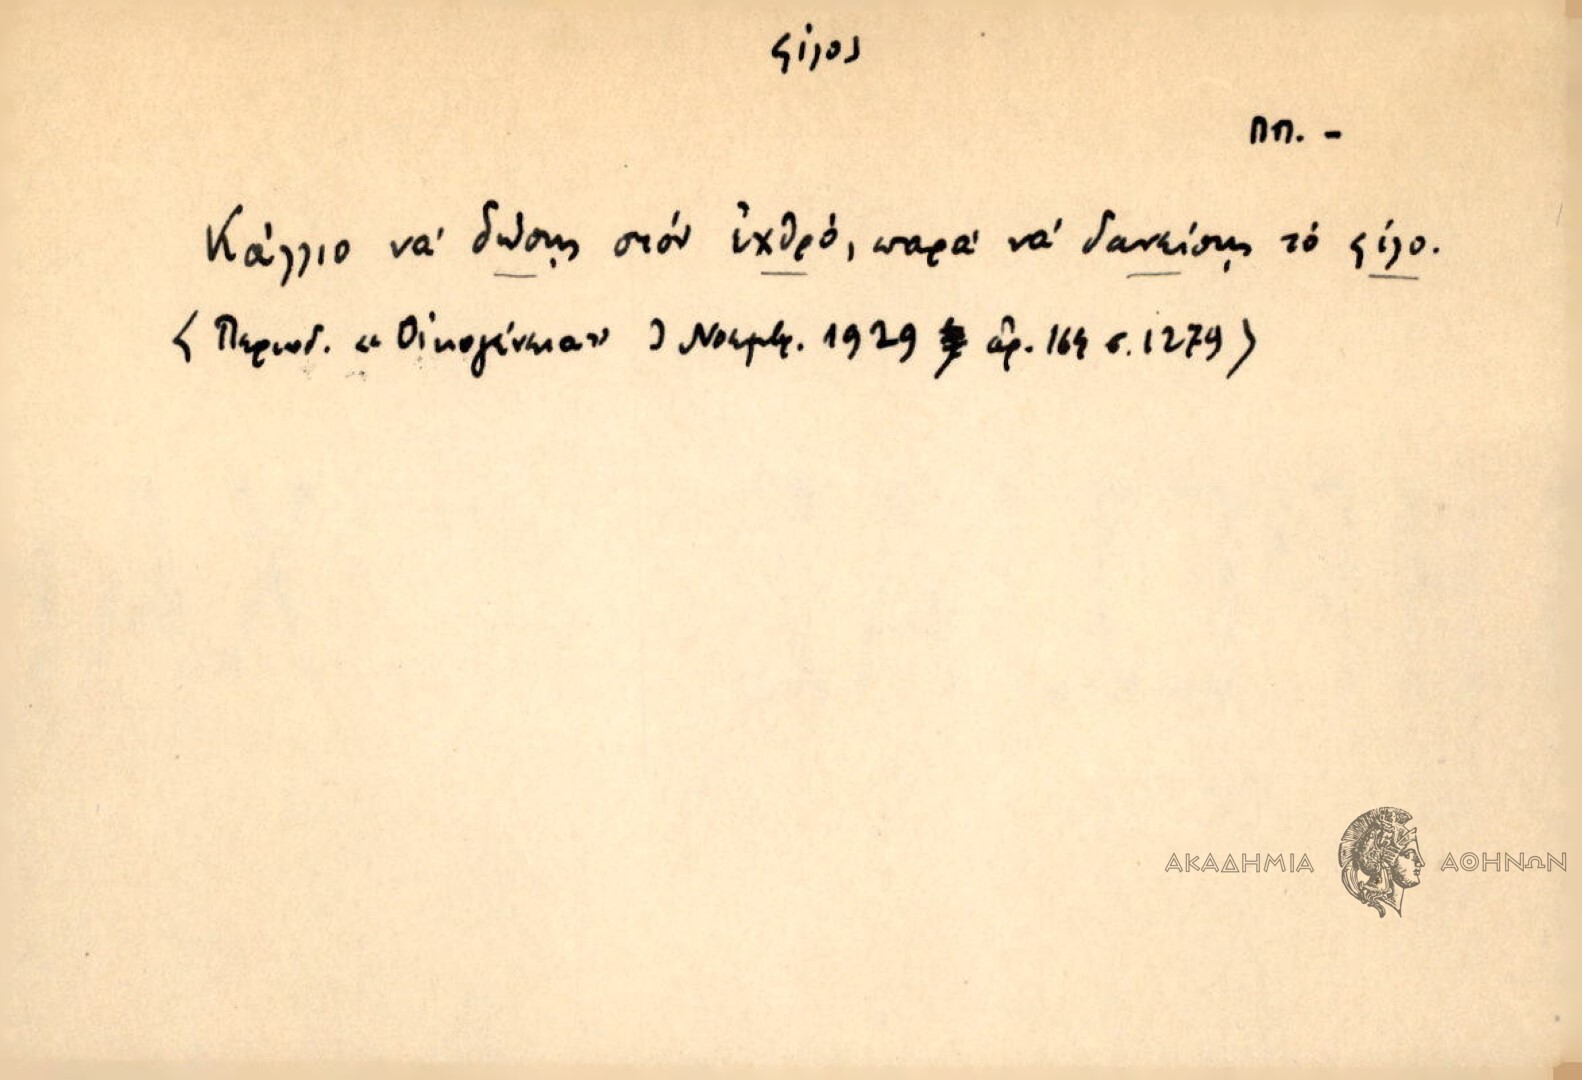 φίλος
ΠΠ. -
Κάλλιο νά δώσῃς στόν ἐχθρό, παρά νά δανείσῃς τό φίλο.
< Περιοδ. « Οἰκογένεια » Νοεμβρ. 1929 ἀρ. 164 σ. 1279 >
ΑΚΑΔΗΜΙΑ ΑΘΗΝΩΝ